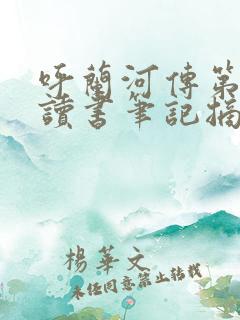 呼蘭河傳第
讀書筆記摘
楊華文
未經同意禁止轉載